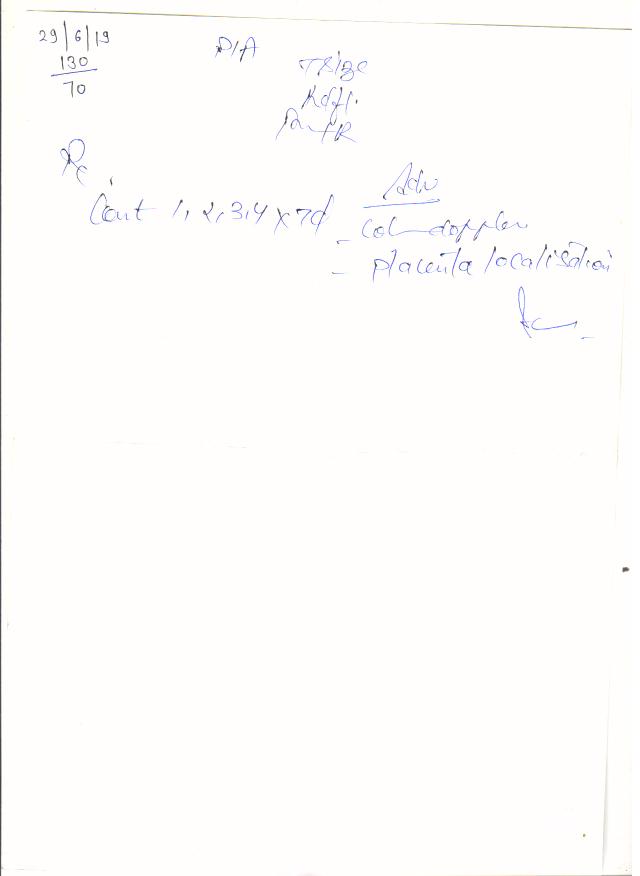 29/6/19
130
70
P/A
T Size
Rx
Adv
Cont 1, 2, 3, 4 x 7d
- Col doppler
- placenta localisation